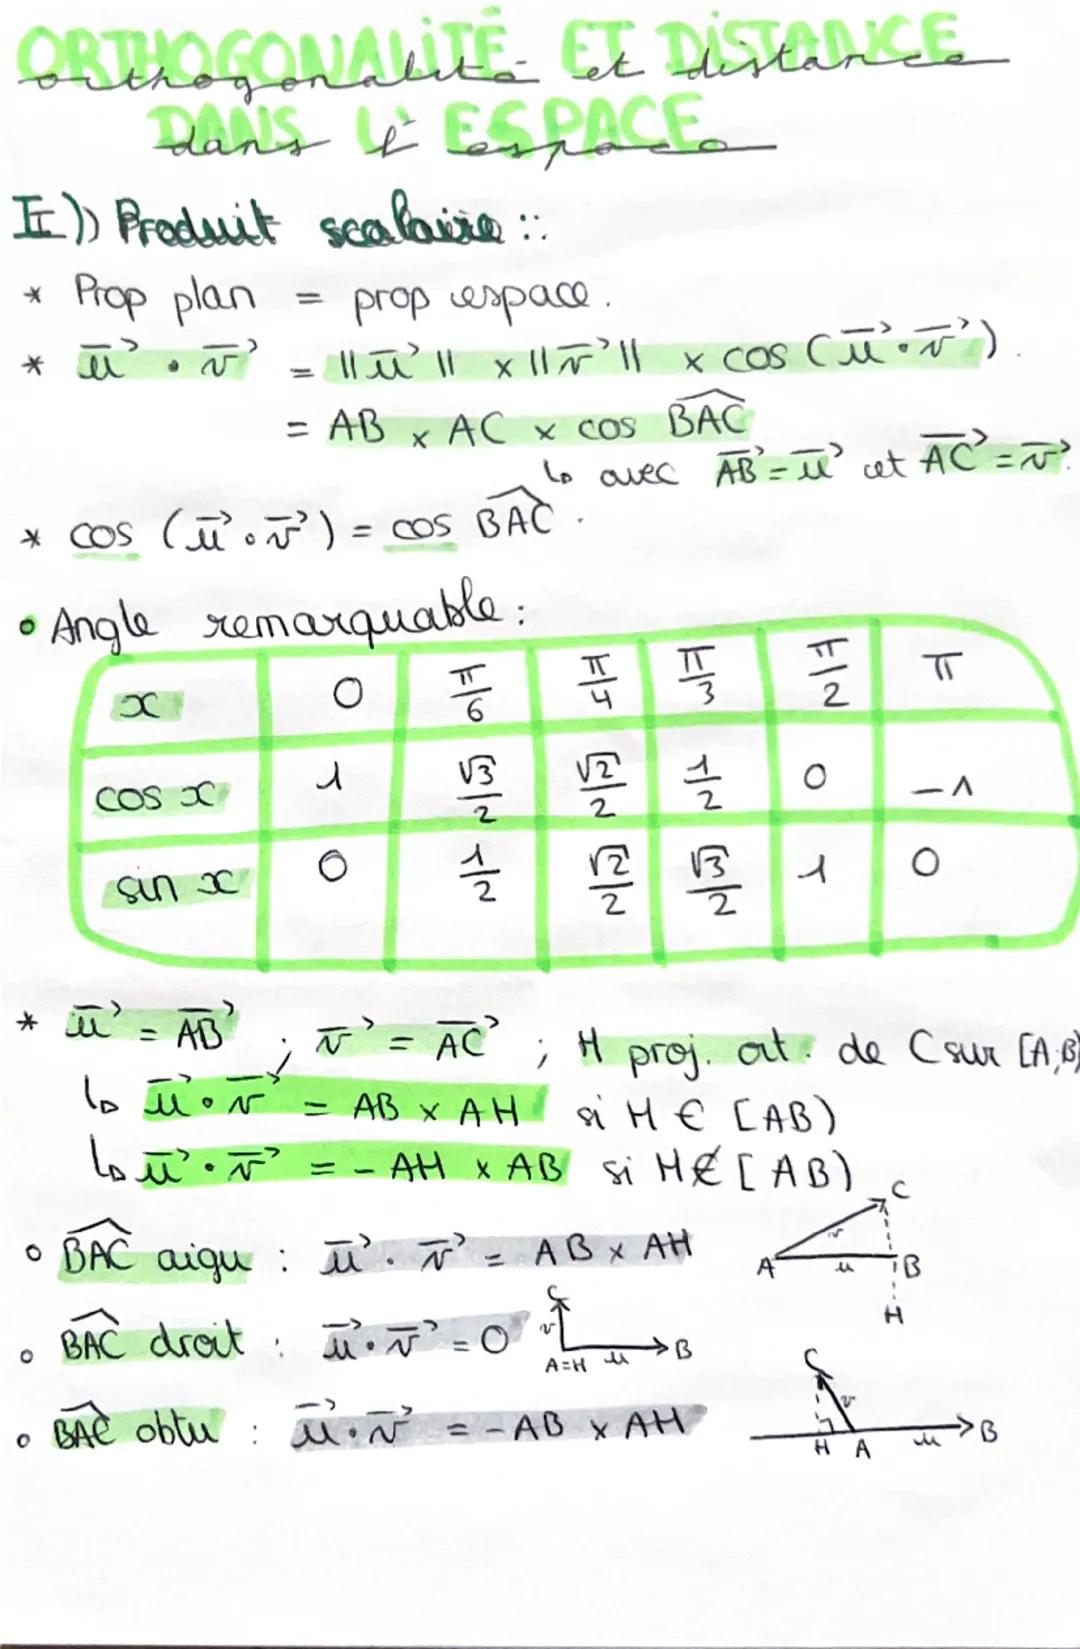 ORTHOGONALITÉ ET DISTANCE
orthogonalité et distance
DANS L'ESPACE
dans l'espace
I)) Produit scalaire ::
* Prop plan = prop espace.
* u⃗ · v⃗ = ||u⃗|| x ||v⃗|| x cos (u⃗ · v⃗).
= AB x AC x cos B̂AC
↳ avec AB⃗ = u⃗ et AC⃗ = v⃗.
* cos (u⃗ · v⃗) = cos B̂AC.
• Angle remarquable :
x 0 π/6 π/4 π/3 π/2 π
cos x 1 √3/2 √2/2 1/2 0 -1
sin x 0 1/2 √2/2 √3/2 1 0
* u⃗ = AB⃗ ; v⃗ = AC⃗ ; H proj. ort. de C sur [A,B)
↳ u⃗ · v⃗ = AB x AH si H ∈ [AB)
↳ u⃗ · v⃗ = - AH x AB si H ∉ [AB)
C
v
A u B
H
• B̂AC aigu : u⃗ · v⃗ = AB x AH
• B̂AC droit : u⃗ · v⃗ = 0
C
v
A=H u B
• B̂AC obtu : u⃗ · v⃗ = - AB x AH
C
v
H A u B